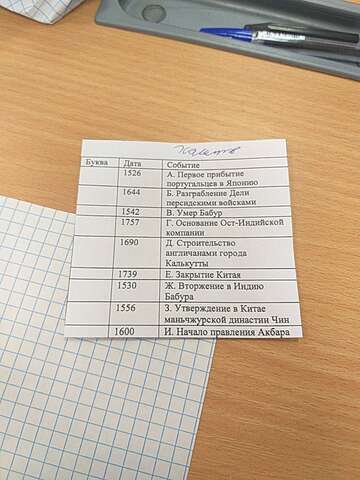 Буква Дата Событие
1526 А. Первое прибытие
португальцев в Японию
1644 Б. Разграбление Дели
персидскими войсками
1542 В. Умер Бабур
1757 Г. Основание Ост-Индийской
компании
1690 Д. Строительство
англичанами города
Калькутты
1739 Е. Закрытие Китая
1530 Ж. Вторжение в Индию
Бабура
1556 З. Утверждение в Китае
маньчжурской династии Чин
1600 И. Начало правления Акбара